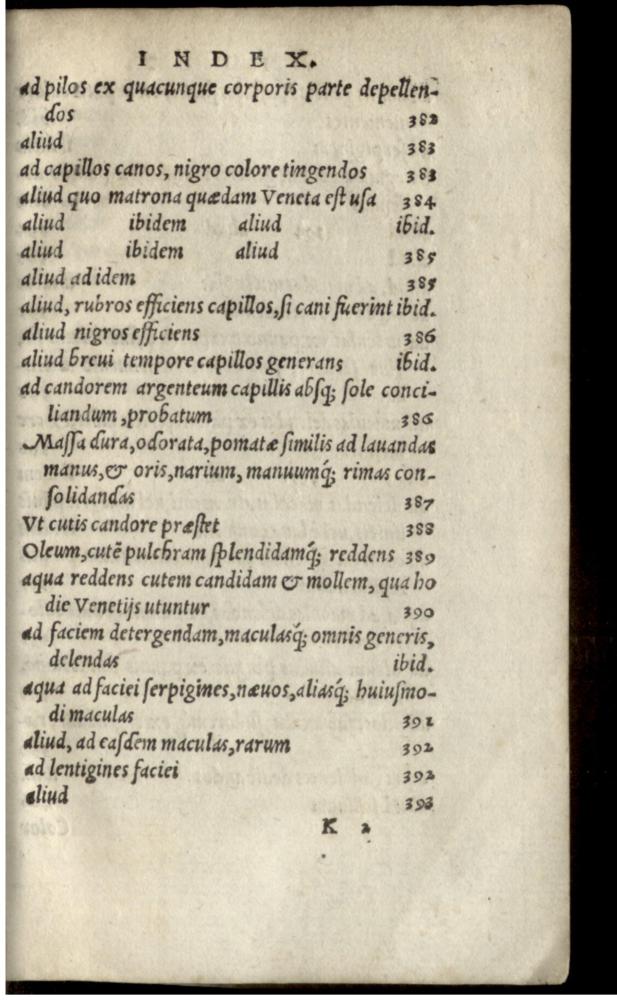 INDEX.
ad pilos ex quacunque corporis parte depellen-
dos 382
aliud 383
ad capillos canos, nigro colore tingendos 383
aliud quo matrona quædam Veneta est usa 384
aliud ibidem aliud ibid.
aliud ibidem aliud 385
aliud ad idem 385
aliud, rubros efficiens capillos, si cani fuerint ibid.
aliud nigros efficiens 386
aliud breui tempore capillos generans ibid.
ad candorem argenteum capillis absq; sole conci-
liandum, probatum 386
Massa dura, odorata, pomatæ similis ad lauandas
manus, & oris, narium, manuumq́; rimas con-
solidandas 387
Vt cutis candore præstet 388
Oleum, cutē pulchram splendidamq́; reddens 389
aqua reddens cutem candidam & mollem, qua ho
die Venetijs utuntur 390
ad faciem detergendam, maculasq́; omnis generis,
delendas ibid.
aqua ad faciei serpigines, næuos, aliasq́; huiusmo-
di maculas 391
aliud, ad easdem maculas, rarum 392
ad lentigines faciei 392
aliud 393
K 2